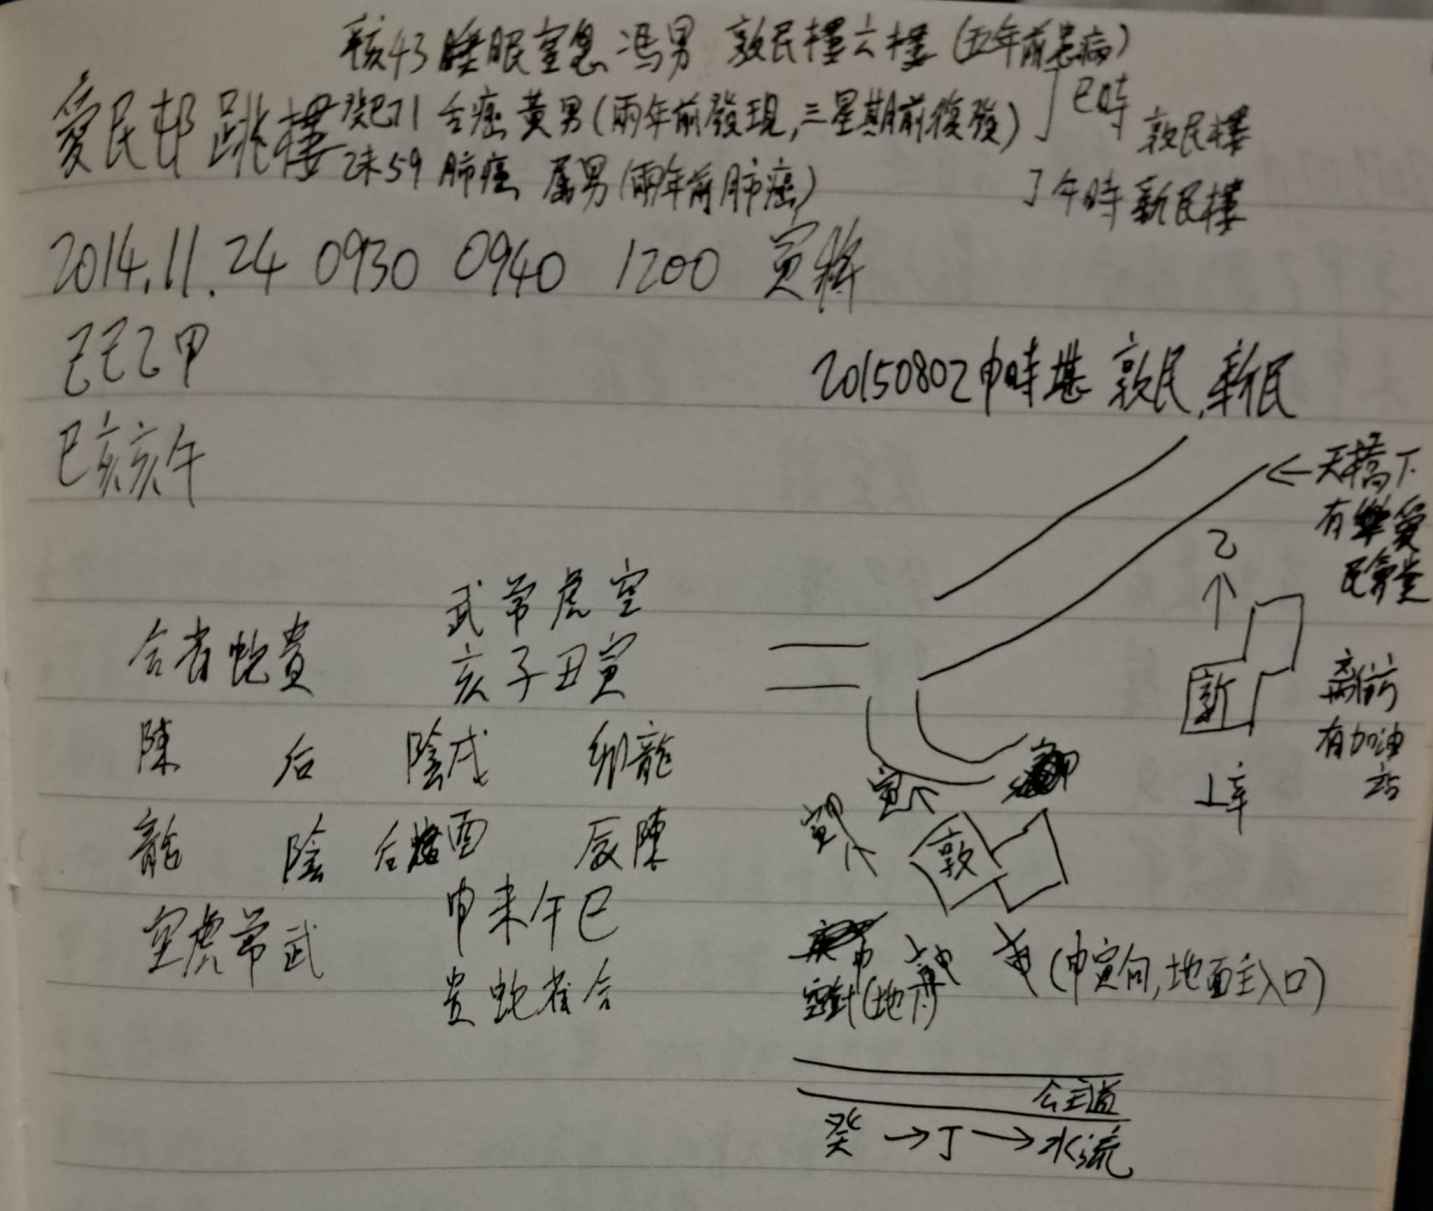 亥43 睡眠窒息 馮男 敦民樓六樓 (五年前患病)
愛民邨跳樓
癸巳71 舌癌 黃男 (兩年前發現,三星期前復發)
巳時
敦民樓
乙未59 肺癌 屠男 (兩年前肺癌)
午時 新民樓
2014.11.24 0930 0940 1200 寅將
己己乙甲
20150802申時堪 敦民,新民
巳亥亥午
天橋下
有愛
民
乙
武常虎空
合雀蛇貴
亥子丑寅
新
有加油
站
陳 后 陰戌 卯龍
上辛
寅
龍 陰 后酉 辰陳
敦
空虎常武
申未午巳
貴蛇雀合
(申寅向,地面主入口)
公主道
癸→丁→水流